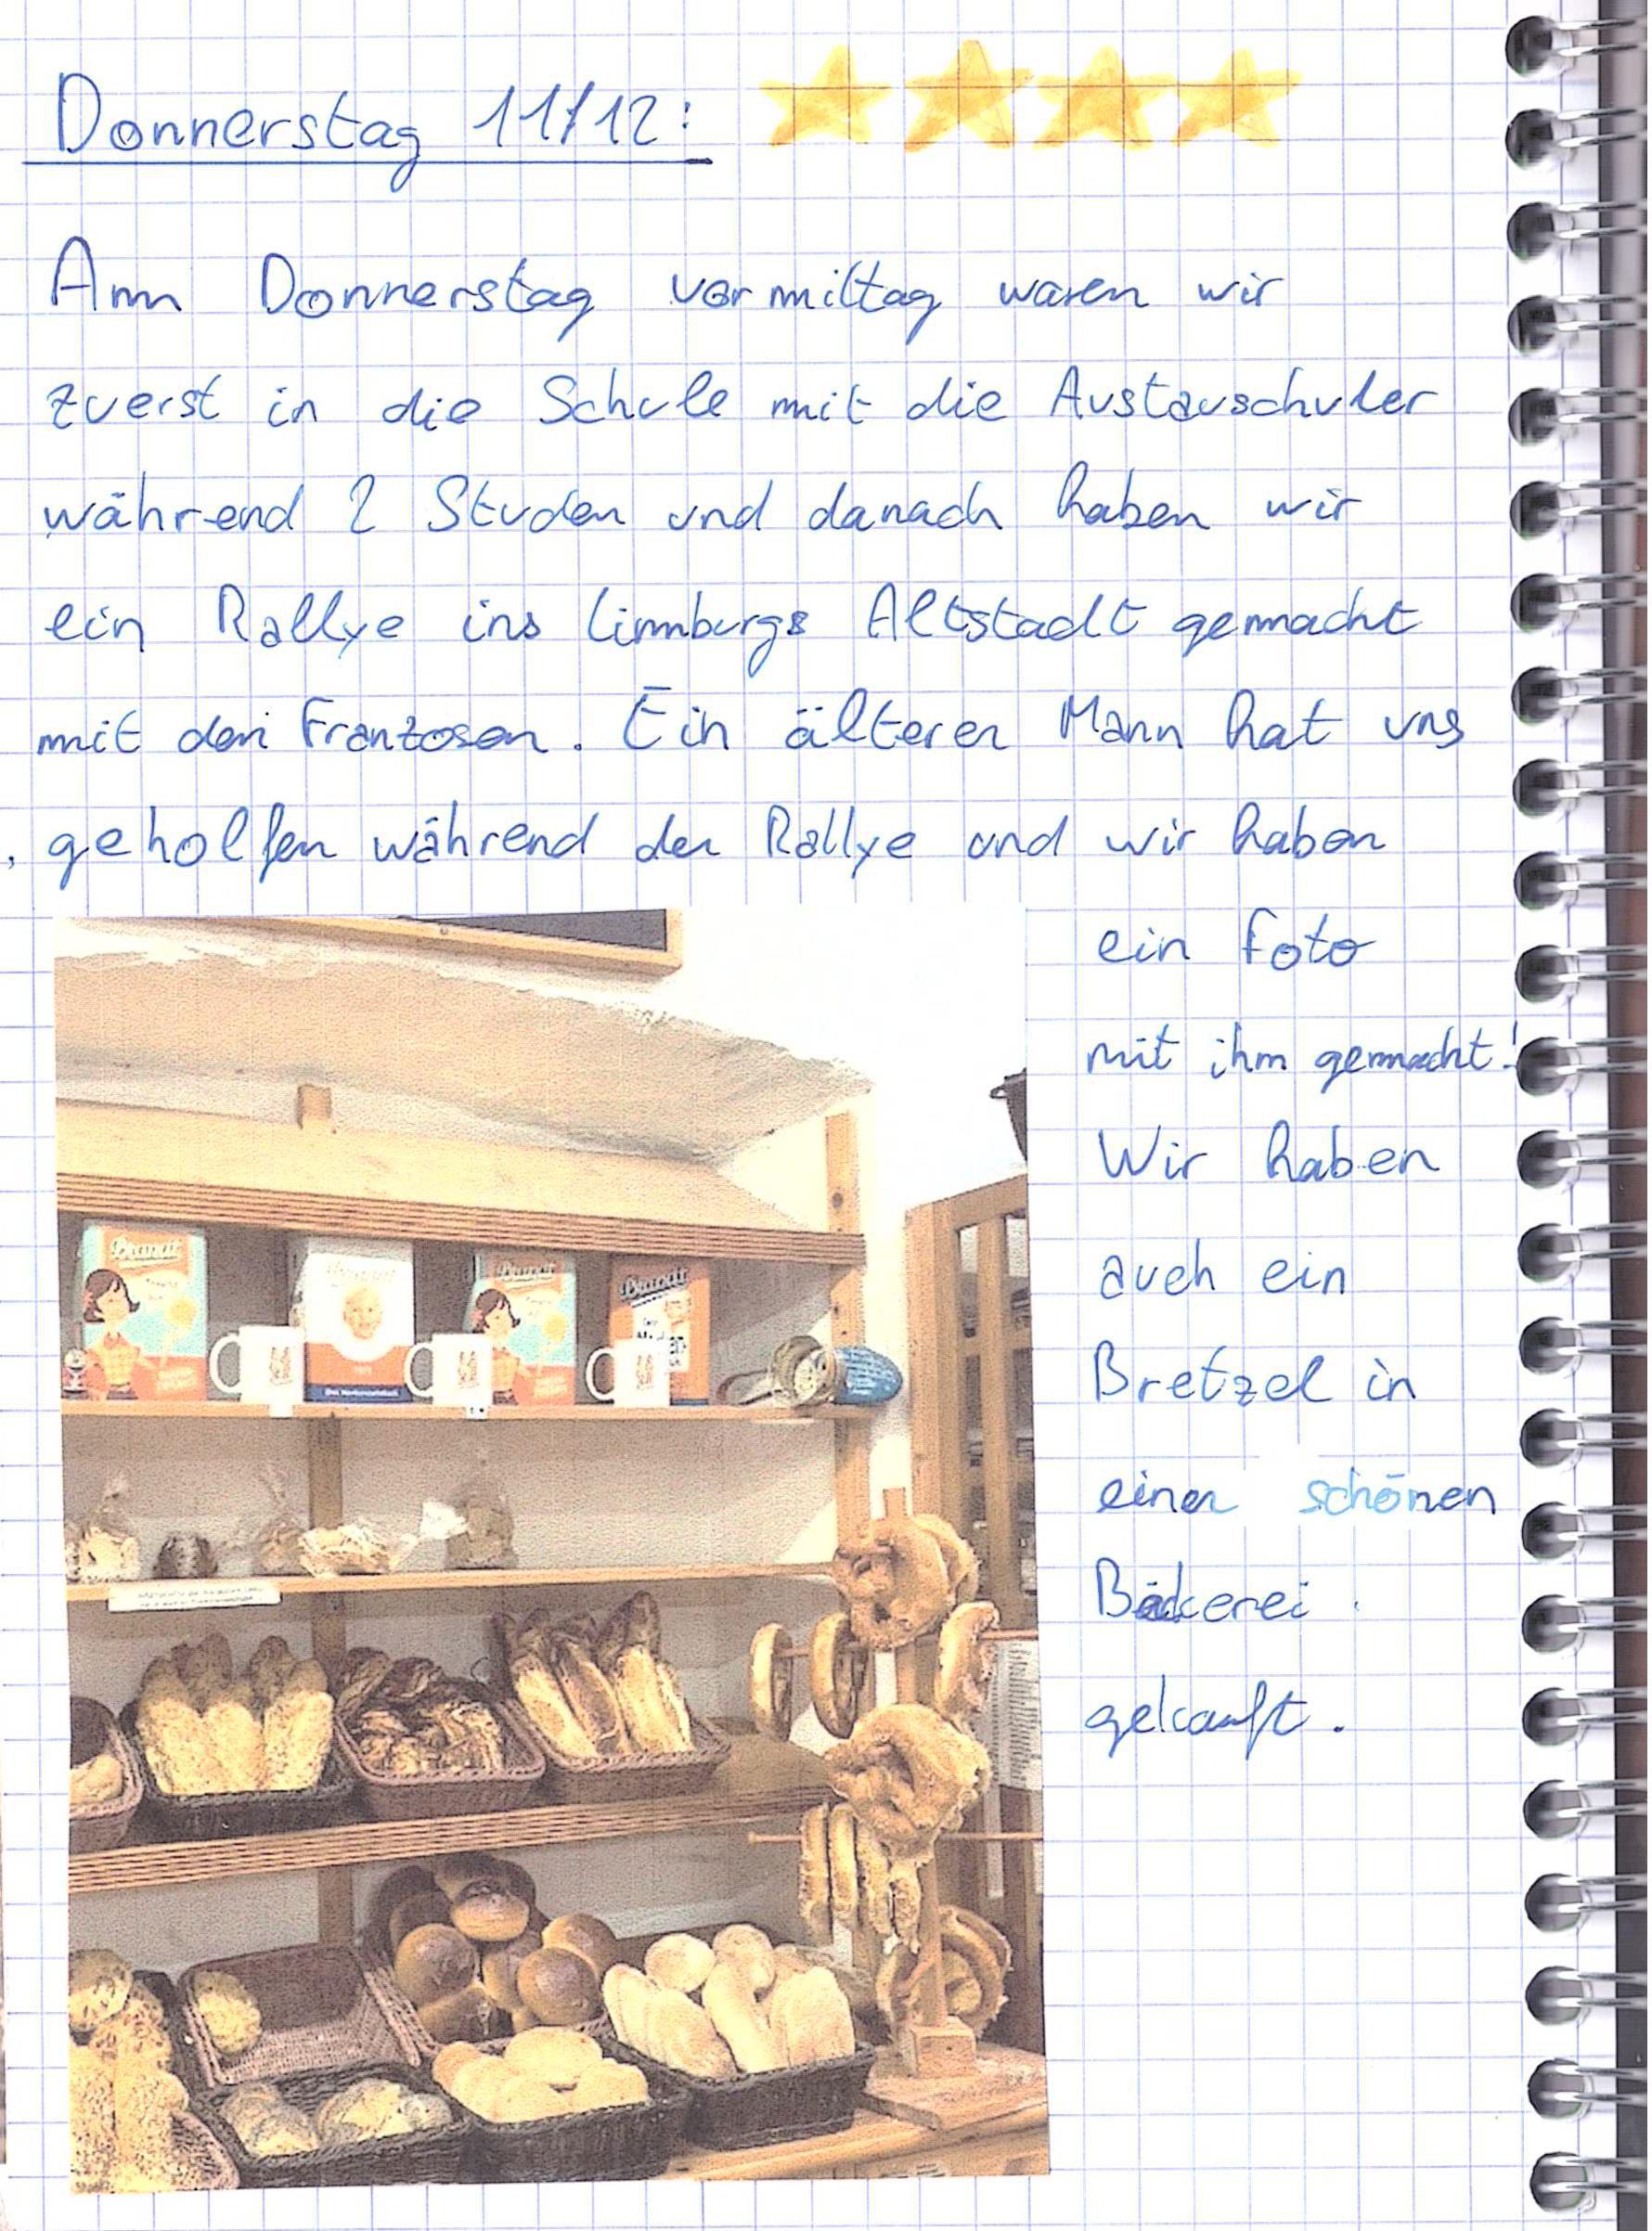 Donnerstag 11/12:
Am Donnerstag vormittag waren wir
zuerst in die Schule mit die Austauschuler
während 2 Studen und danach haben wir
ein Rallye ins Limburgs Altstadt gemacht
mit den Franzosen. Ein älterer Mann hat uns
geholfen während der Rallye und wir haben
ein Foto
mit ihm gemacht!
Wir haben
auch ein
Bretzel in
einer schönen
Bäckerei
gekauft.
Brandt
Brandt
Brandt
Brandt